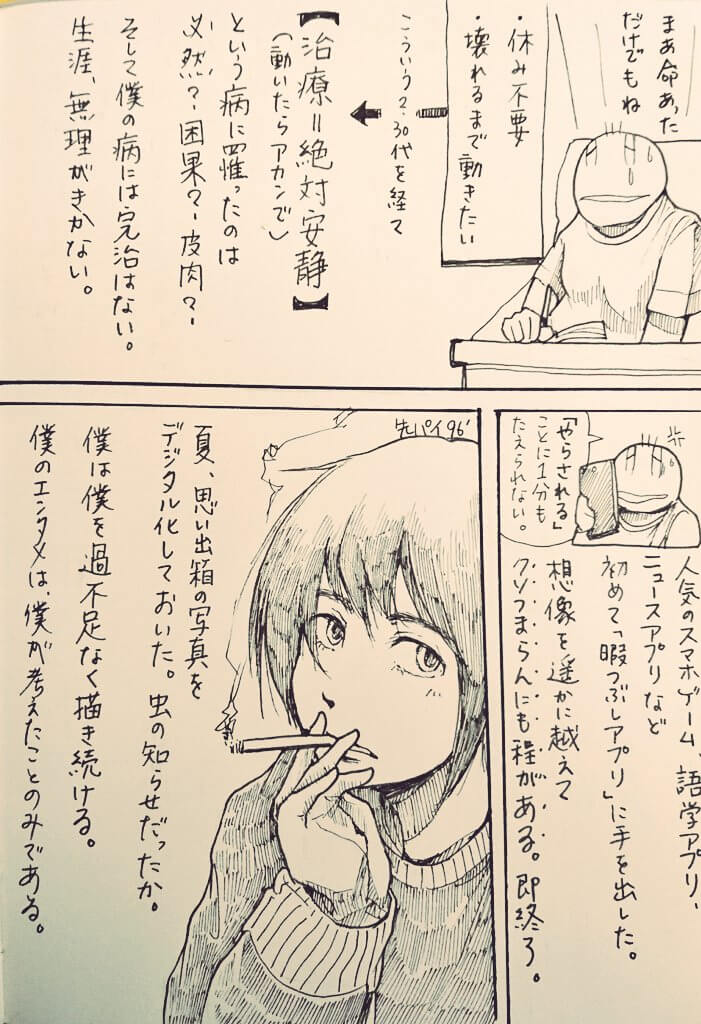 まあ命あった
だけでもね
・休み不要
・壊れるまで動きたい
こういう2、30代を経て
【治療=絶対安静】
(動いたらアカンで)
という病に罹ったのは
必然?因果?皮肉?
そして僕の病には完治はない。
生涯、無理がきかない。
「やらされる」
ことに1分も
たえられない。
人気のスマホゲーム、語学アプリ、
ニュースアプリなど
初めて「暇つぶしアプリ」に手を出した。
想像を遥かに越えて
クソつまらんにも程がある。即終了。
先パイ96'
夏、思い出箱の写真を
デジタル化しておいた。虫の知らせだったか。
僕は僕を過不足なく描き続ける。
僕のエンタメは、僕が考えたことのみである。